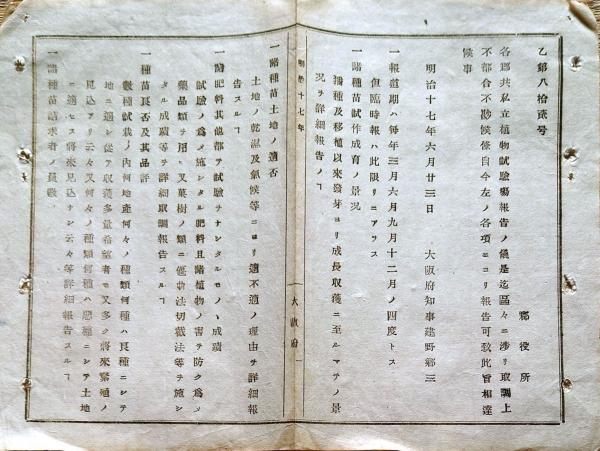 乙第八拾貳号
郡役所
各郡共私立植物試驗塲報告ノ儀是迄區々ニ渉リ取調上
不都合不尠候條自今左ノ各項ニヨリ報告可致此旨相達
候事
明治十七年六月廿三日　大阪府知事建野郷三
一報告期ハ毎年三月六月九月十二月ノ四度トス
但臨時報ハ此限リニアラス
一諸種苗試作成育ノ景况
播種及移植以來發芽ヨリ成長収穫ニ至ルマテノ景
况ヲ詳細報告ノヿ
明治十七年
大阪府
一諸種苗土地ノ適否
土地ノ乾濕及氣候等ニヨリ適不適ノ理由ヲ詳細報
告スルヿ
一諸肥料其他都テ試驗ヲナシタルモノヽ成蹟
試驗ノ爲メ施シタル肥料且諸植物ノ害ヲ防ク爲メ
藥品類ヲ用ヒ又菓樹ノ類ニ便動法切截法等ヲ施シ
タル成蹟等ヲ詳細取調報告スルヿ
一種苗良否及其品評
數種試栽ノ内何地産何々ノ種類何種ハ良種ニシテ
地ニ適シ從テ収穫多量希望者モ又多ク將來繁殖ノ
見込アリ云々又何々ノ種類何種ハ惡種ニシテ土地
ニ適セス將來見込ナシ云々等詳細報告スルヿ
一諸種苗請求者ノ員數